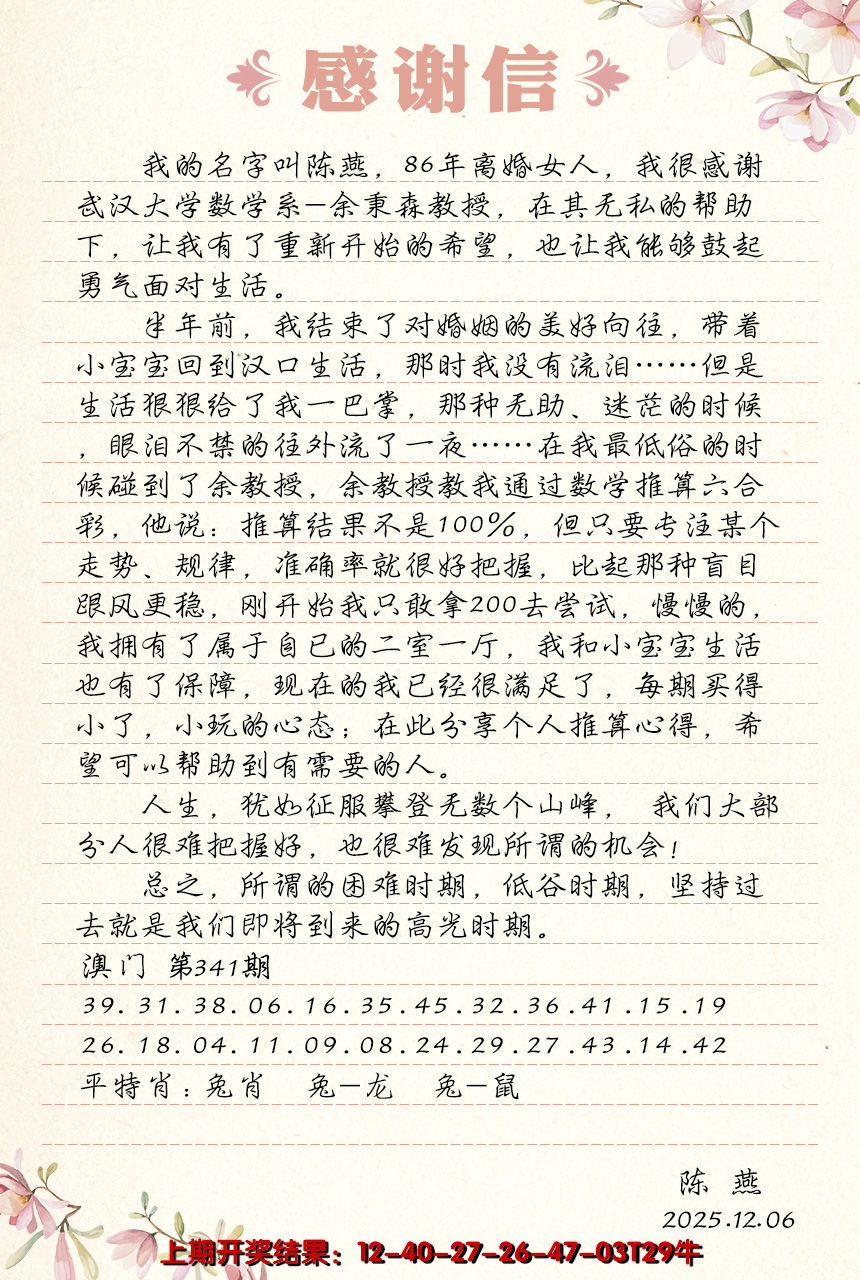 感谢信
我的名字叫陈燕，86年离婚女人，我很感谢
武汉大学数学系—余秉森教授，在其无私的帮助
下，让我有了重新开始的希望，也让我能够鼓起
勇气面对生活。
半年前，我结束了对婚姻的美好向往，带着
小宝宝回到汉口生活，那时我没有流泪……但是
生活狠狠给了我一巴掌，那种无助、迷茫的时候
，眼泪不禁的往外流了一夜……在我最低俗的时
候碰到了余教授，余教授教我通过数学推算六合
彩，他说：推算结果不是100%，但只要专注某个
走势、规律，准确率就很好把握，比起那种盲目
跟风更稳，刚开始我只敢拿200去尝试，慢慢的，
我拥有了属于自已的二室一厅，我和小宝宝生活
也有了保障，现在的我已经很满足了，每期买得
小了，小玩的心态；在此分享个人推算心得，希
望可以帮助到有需要的人。
人生，犹如征服攀登无数个山峰， 我们大部
分人很难把握好，也很难发现所谓的机会！
总之，所谓的困难时期，低谷时期，坚持过
去就是我们即将到来的高光时期。
澳门 第341期
39.31.38.06.16.35.45.32.36.41.15.19
26.18.04.11.09.08.24.29.27.43.14.42
平特肖：兔肖 兔—龙 兔—鼠
陈 燕
2025.12.06
上期开奖结果：12-40-27-26-47-03T29牛